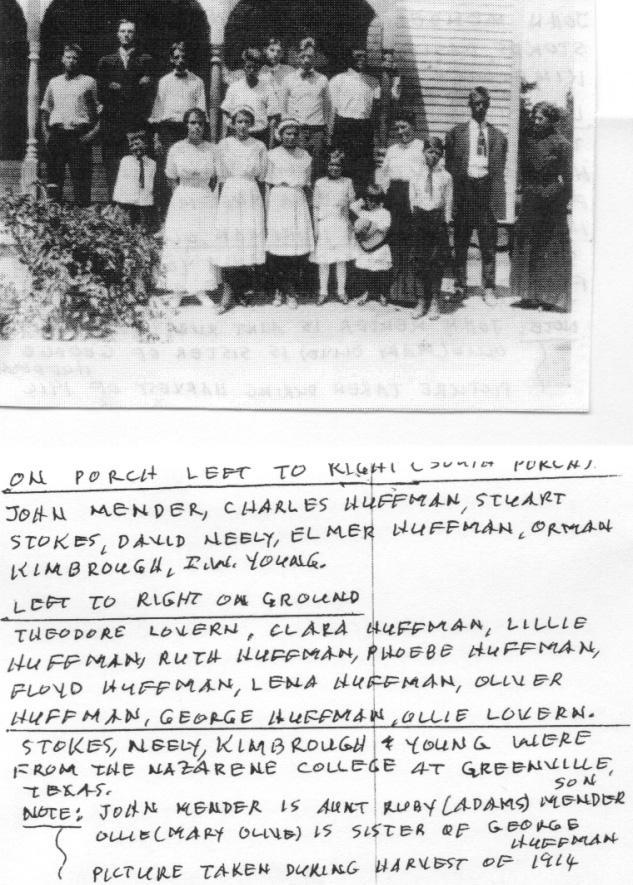 ON PORCH LEFT TO RIGHT (SOUTH PORCH)
JOHN MENDER, CHARLES HUFFMAN, STUART
STOKES, DAVID NEELY, ELMER HUFFMAN, ORMAN
KIMBROUGH, I.W. YOUNG.
LEFT TO RIGHT ON GROUND
THEODORE LOVERN, CLARA HUFFMAN, LILLIE
HUFFMAN, RUTH HUFFMAN, PHOEBE HUFFMAN,
FLOYD HUFFMAN, LENA HUFFMAN, OLIVER
HUFFMAN, GEORGE HUFFMAN, OLLIE LOVERN.
STOKES, NEELY, KIMBROUGH & YOUNG WERE
FROM THE NAZARENE COLLEGE AT GREENVILLE,
TEXAS.
NOTE: JOHN MENDER IS AUNT RUBY (ADAMS) MENDER
SON
OLLIE (MARY OLIVE) IS SISTER OF GEORGE
HUFFMAN
PICTURE TAKEN DURING HARVEST OF 1914